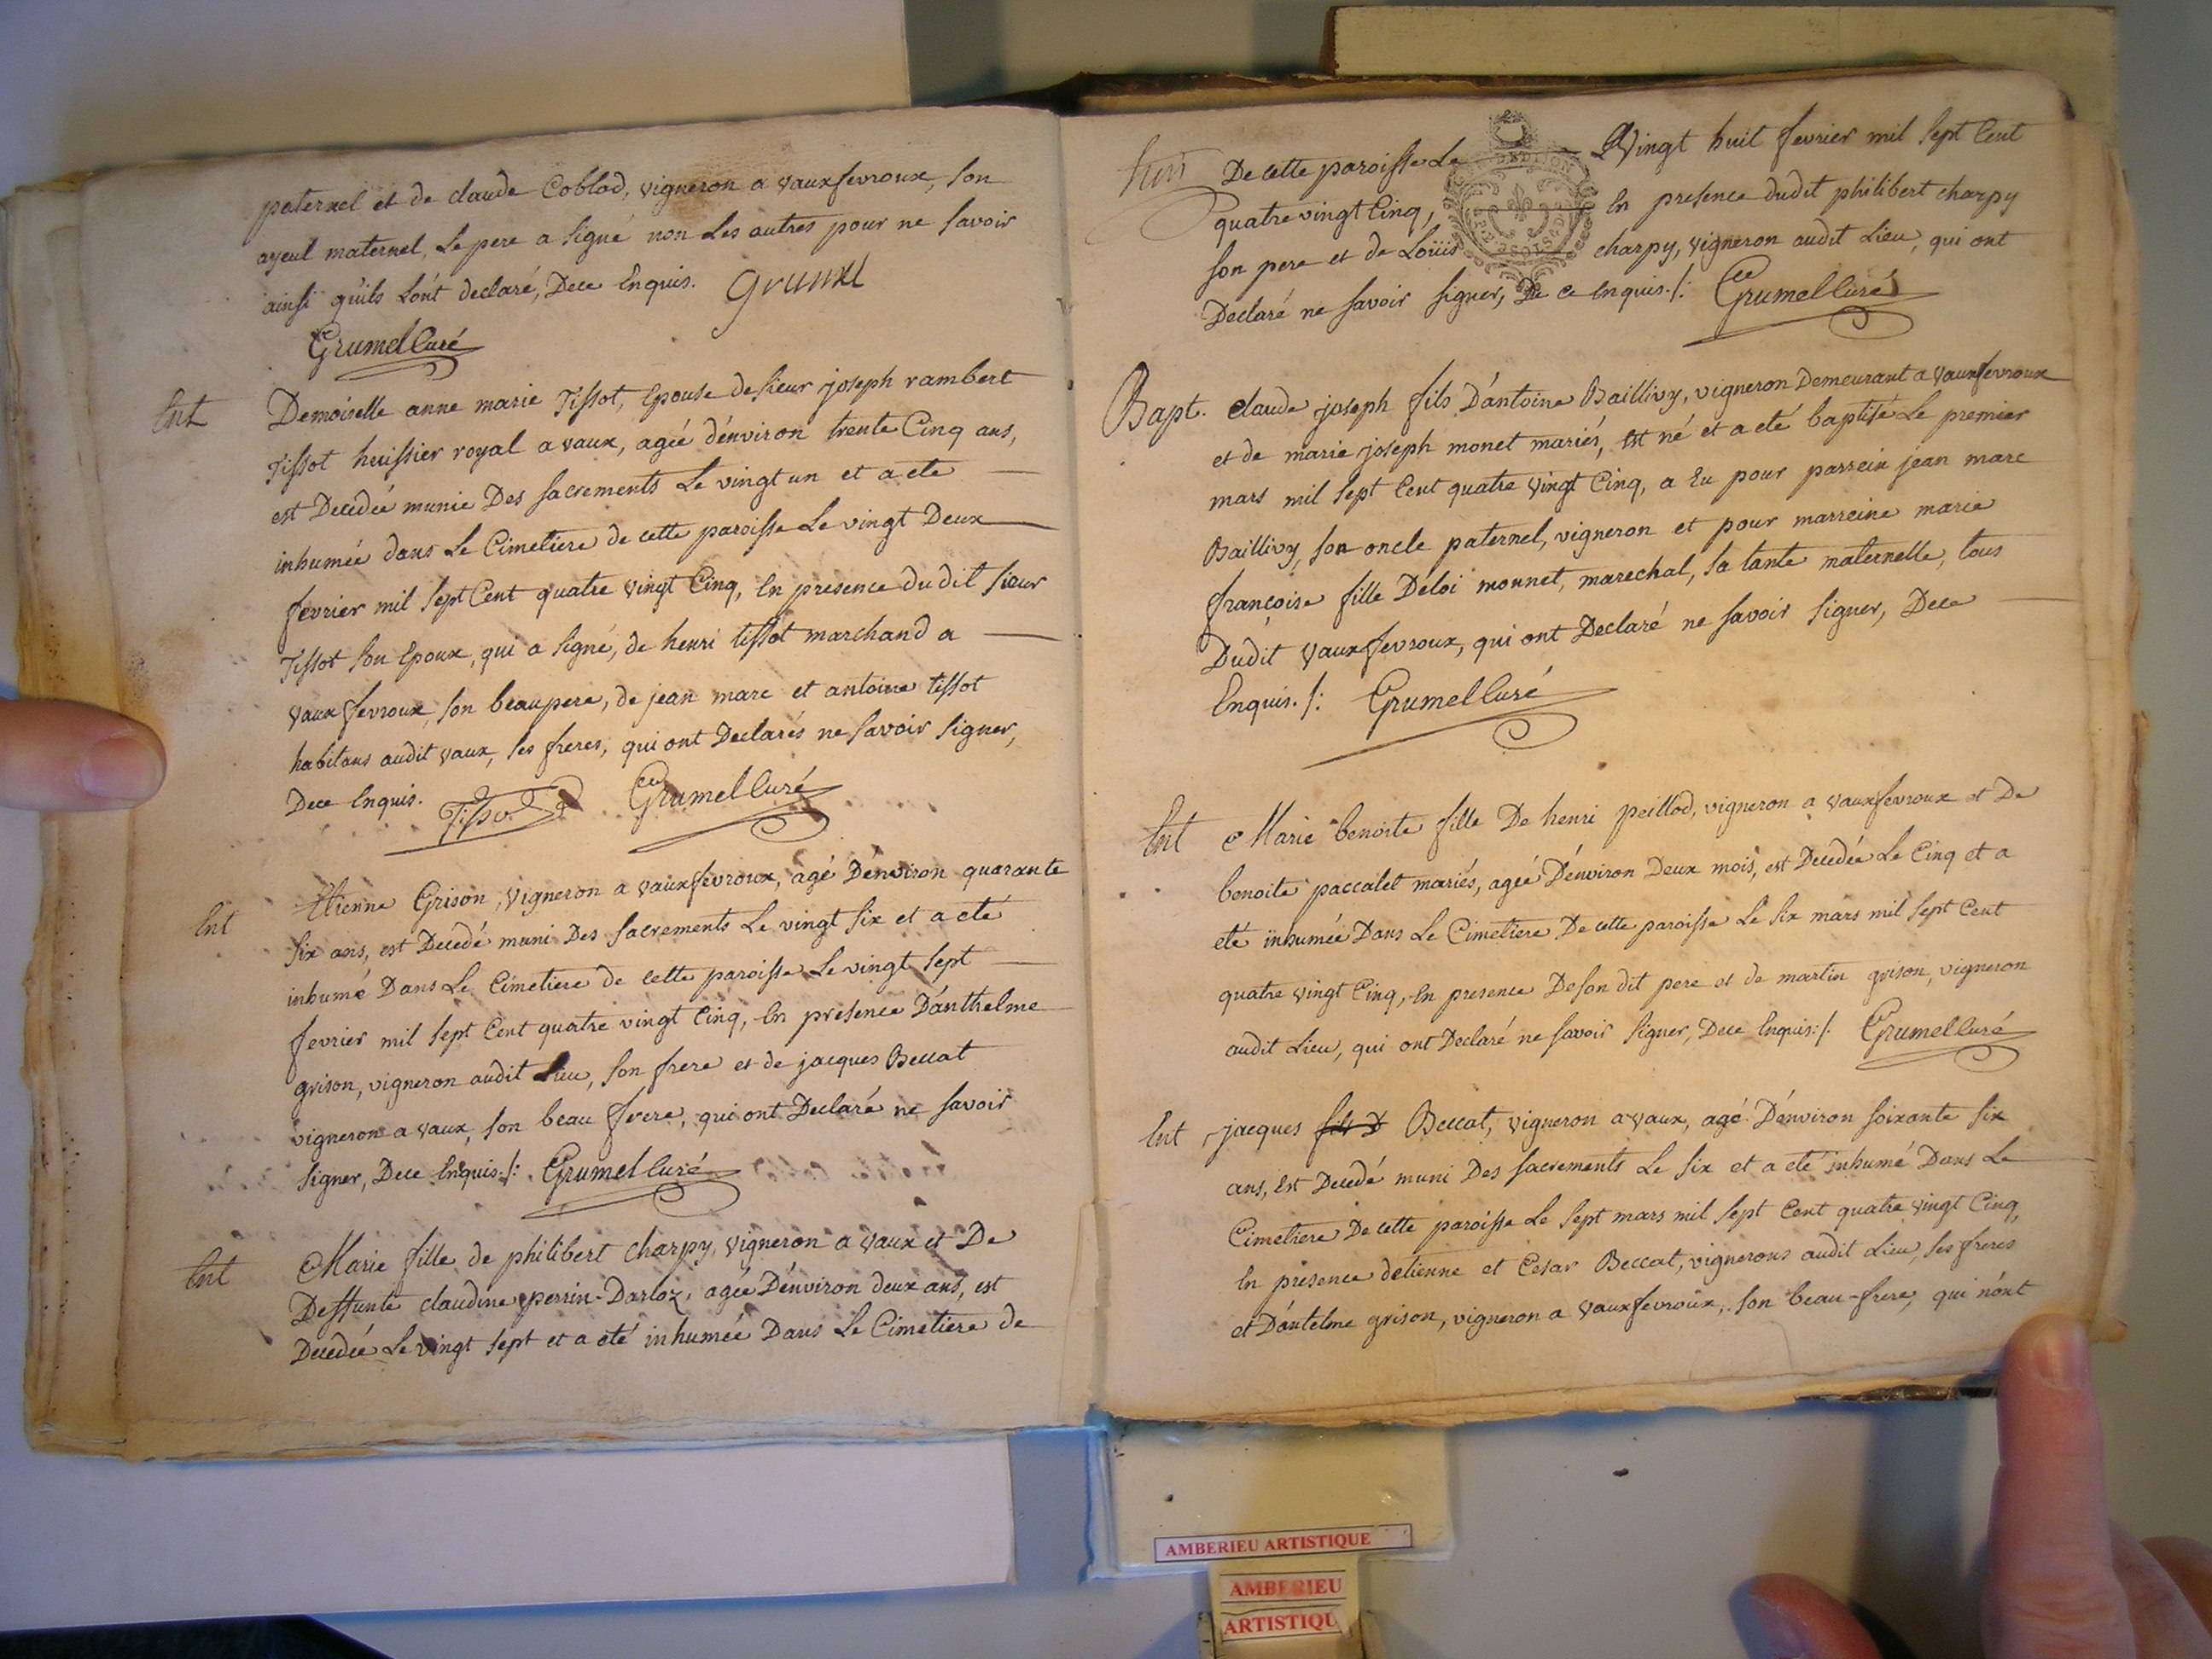 paternel et de claude Coblod, vigneron a vauxfevroux, son
ayeul maternel, Le pere a signé non Les autres pour ne savoir
ainsi qu'ils L'ont declaré, Dece Enquis. Grumel
Grumel Curé
Ent Demoiselle anne marie Tissot, Epouse de sieur joseph rambert
Tissot huissier royal a vaux, agée d'environ trente Cinq ans,
est Decedée munie Des sacrements Le vingt un et a eté
inhumée dans Le Cimetiere de cette paroisse Le vingt Deux
fevrier mil sept Cent quatre vingt Cinq, En presence du dit sieur
Tissot son Epoux, qui a signé, de henri tissot marchand a
vaux fevroux, son beaupere, de jean marc et antoine tissot
habitans audit vaux, ses freres, qui ont Declarés ne savoir signer,
Dece Enquis. Tissot Grumel Curé
Ent Etienne Grison, vigneron a vauxfevroux, agé D'environ quarante
six ans, est Decedé muni Des sacrements Le vingt six et a eté
inhumé Dans Le Cimetiere de cette paroisse Le vingt sept
fevrier mil sept Cent quatre vingt Cinq, En presence D'anthelme
grison, vigneron audit Lieu, son frere et de jacques Beccat
vigneron a vaux, son beau frere, qui ont Declaré ne savoir
signer, Dece Enquis./: Grumel Curé
Ent Marie fille de philibert charpy, vigneron a vaux et De
Deffunte claudine perrin-Darloz, agée D'environ deux ans, est
Decedée Le vingt sept et a eté inhumée Dans Le Cimetiere de
De cette paroisse Le Vingt huit fevrier mil sept Cent
quatre vingt Cinq, En presence dudit philibert charpy
son pere et de Loüis charpy, vigneron audit Lieu, qui ont
Declaré ne savoir signer, De ce Enquis./: Grumel Curé
Bapt. claude joseph fils D'antoine Baillivy, vigneron Demeurant a vauxfevroux
et de marie joseph monet mariés, est né et a eté baptisé Le premier
mars mil sept Cent quatre vingt Cinq, a Eu pour parrein jean marc
Baillivy, son oncle paternel, vigneron et pour marreine marie
françoise fille D'eloi monnet, marechal, sa tante maternelle, tous
Dudit vauxfevroux, qui ont Declaré ne savoir signer, Dece
Enquis./: Grumel Curé
Ent Marie benoite fille De henri peillod, vigneron a vauxfevroux et De
benoite paccalet mariés, agée D'environ Deux mois, est Decedée Le Cinq et a
eté inhumée Dans Le Cimetiere De cette paroisse Le six mars mil sept Cent
quatre vingt Cinq, En presence De son dit pere et de martin grison, vigneron
audit Lieu, qui ont Declaré ne savoir signer, Dece Enquis:/. Grumel Curé
Ent jacques fils D Beccat, vigneron a vaux, agé D'environ soixante six
ans, est Decedé muni Des sacrements Le six et a eté inhumé Dans Le
Cimetiere De cette paroisse Le sept mars mil sept Cent quatre vingt Cinq,
En presence d'etienne et Cesar Beccat, vignerons audit Lieu, ses freres
et D'antelme grison, vigneron a vauxfevroux, son beau-frere, qui n'ont
AMBERIEU ARTISTIQUE
AMBERIEU
ARTISTIQU